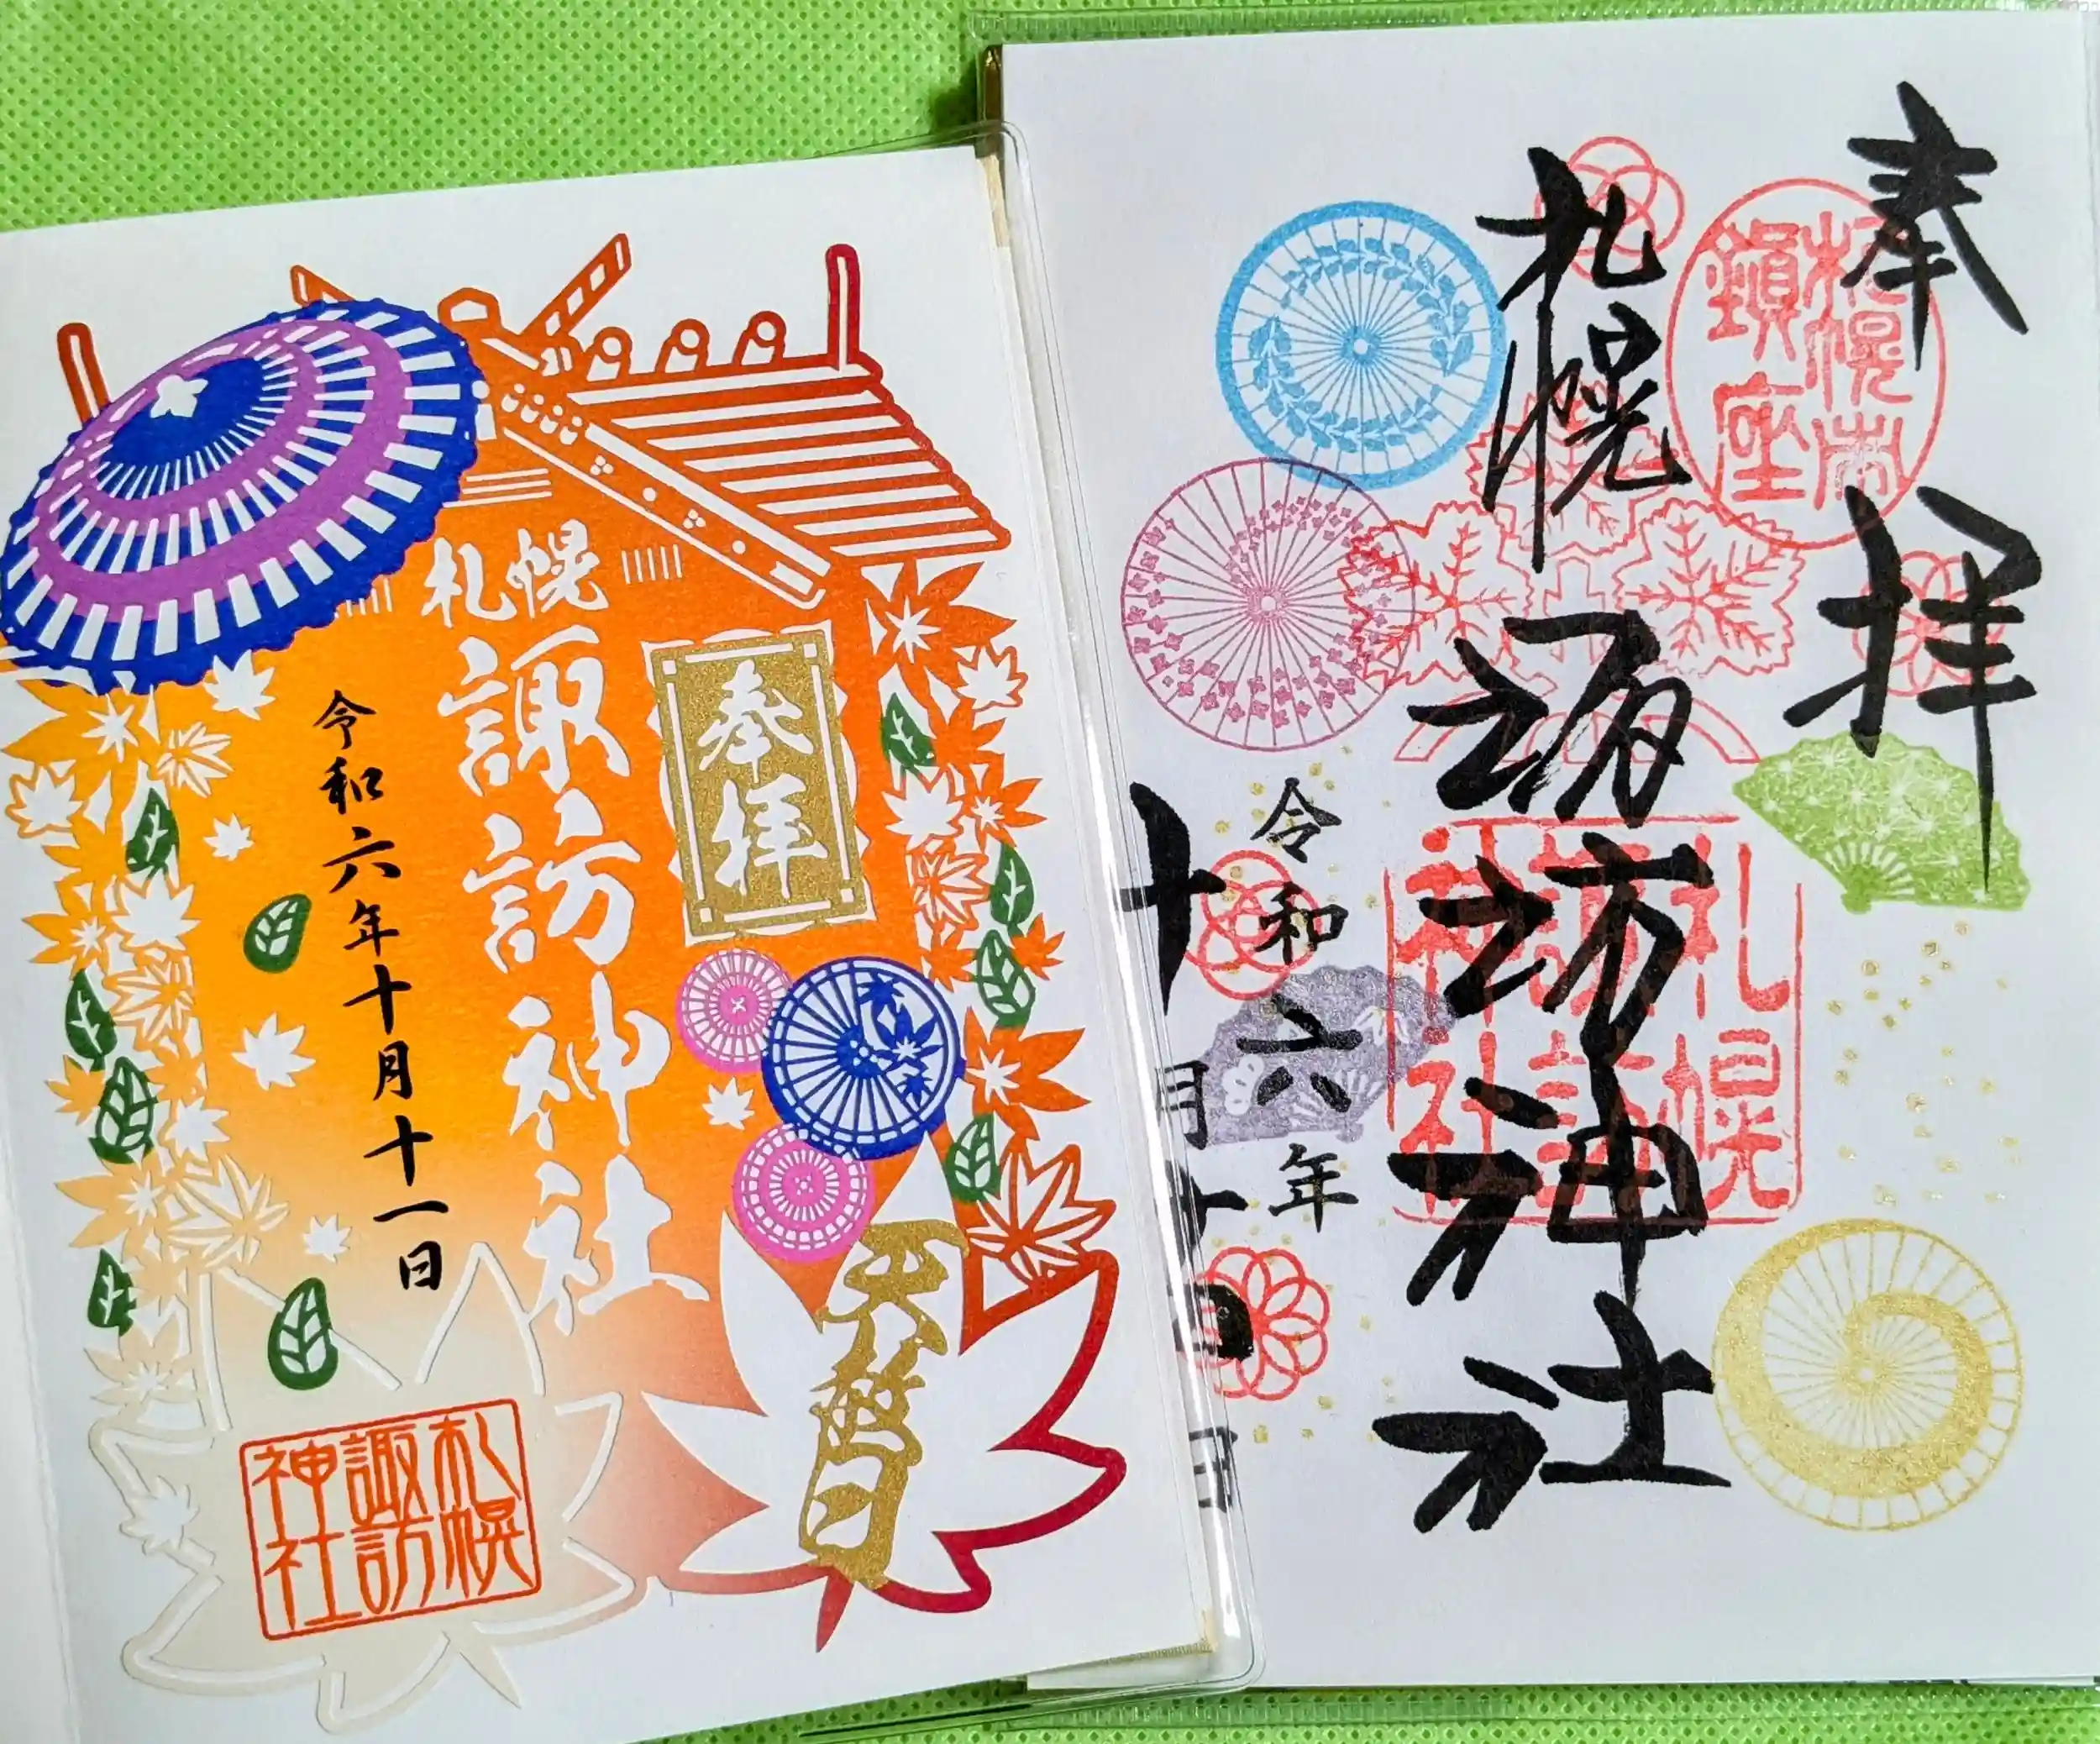 奉拝
札幌
諏訪神社
令和六年十月十一日
天赦日
札幌
諏訪
神社
奉拝
札幌市
鎮座
札幌
諏訪神社
札幌
諏訪
神社
令和六年
十月十
日